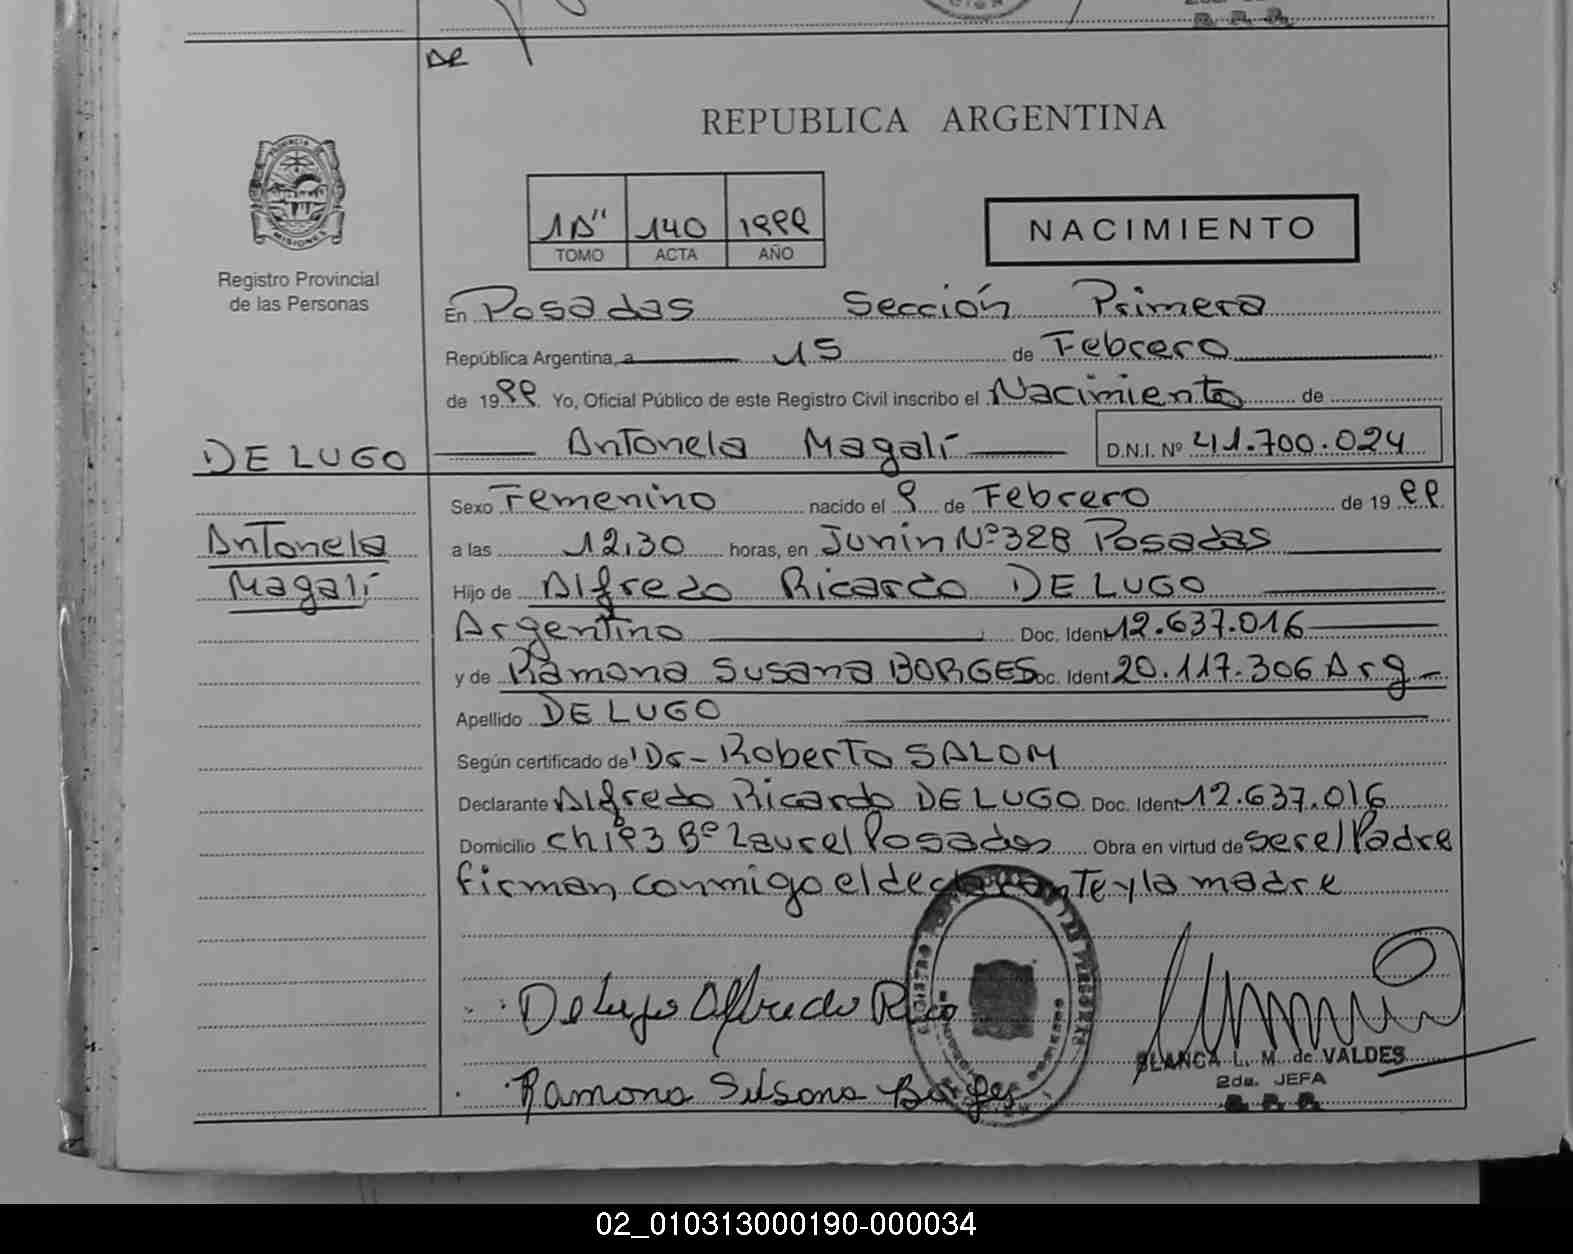 DE
REPUBLICA ARGENTINA
PROVINCIA DE
MISIONES
Registro Provincial
de las Personas
1A" 140 1999
TOMO ACTA AÑO
NACIMIENTO
En Posadas Sección Primera
República Argentina, a 15 de Febrero
de 1999 Yo, Oficial Público de este Registro Civil inscribo el Nacimiento de
DE LUGO Antonela Magalí D.N.I. Nº 41.700.024
Sexo Femenino nacido el 9 de Febrero de 1999
Antonela a las 12,30 horas, en Junín Nº 328 Posadas
Magalí Hijo de Alfredo Ricardo DE LUGO
Argentino Doc. Ident 12.637.016
y de Ramona Susana BORGES Doc. Ident 20.117.306 Arg
Apellido DE LUGO
Según certificado de Dr- Roberto SALOM
Declarante Alfredo Ricardo DE LUGO Doc. Ident 12.637.016
Domicilio Bº Laurel Posadas Obra en virtud de ser el Padre
firman, conmigo el declarante y la madre
De Lugo Alfredo Rico
BLANCA L. M. de VALDES
2da. JEFA
Ramona Susana Borges
02_010313000190-000034